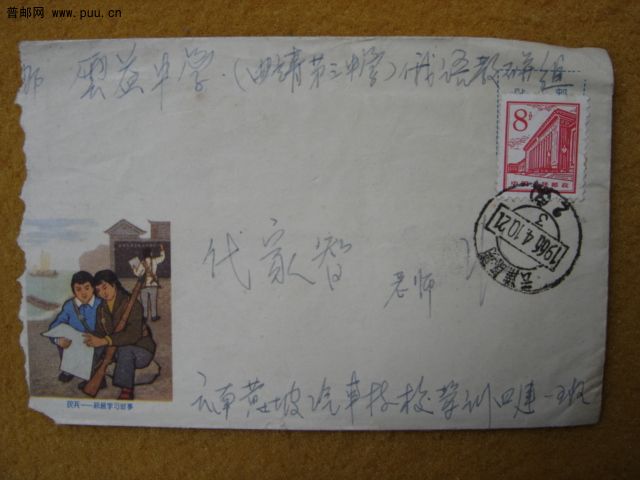 普邮网 www.puu.cn
霑益中学(曲靖第三中学)俄语教研组
8分
中国人民邮政
1966.4.10.21
代家智
老师
云南黄坡汽车技校军训四连一班
民兵——积极学习故事